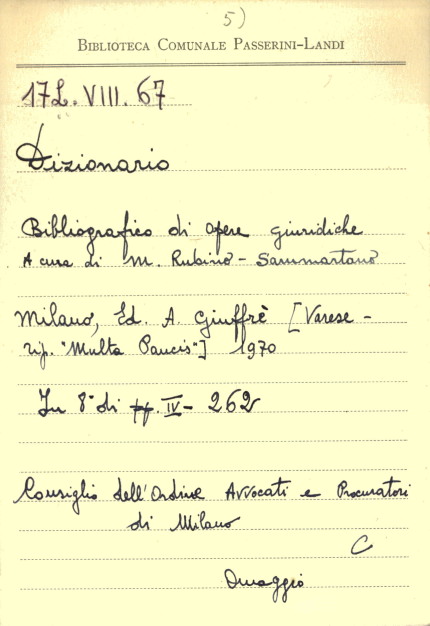 5)
BIBLIOTECA COMUNALE PASSERINI-LANDI
17L. VIII. 67
Dizionario
Bibliografico di opere giuridiche
A cura di M. Rubino - Sammartano
Milano, Ed. A. Giuffrè [Varese -
tip. "Multa Paucis"] 1970
In 8° di pp. IV - 262
Consiglio dell'Ordine Avvocati e Procuratori
di Milano
C
Omaggio